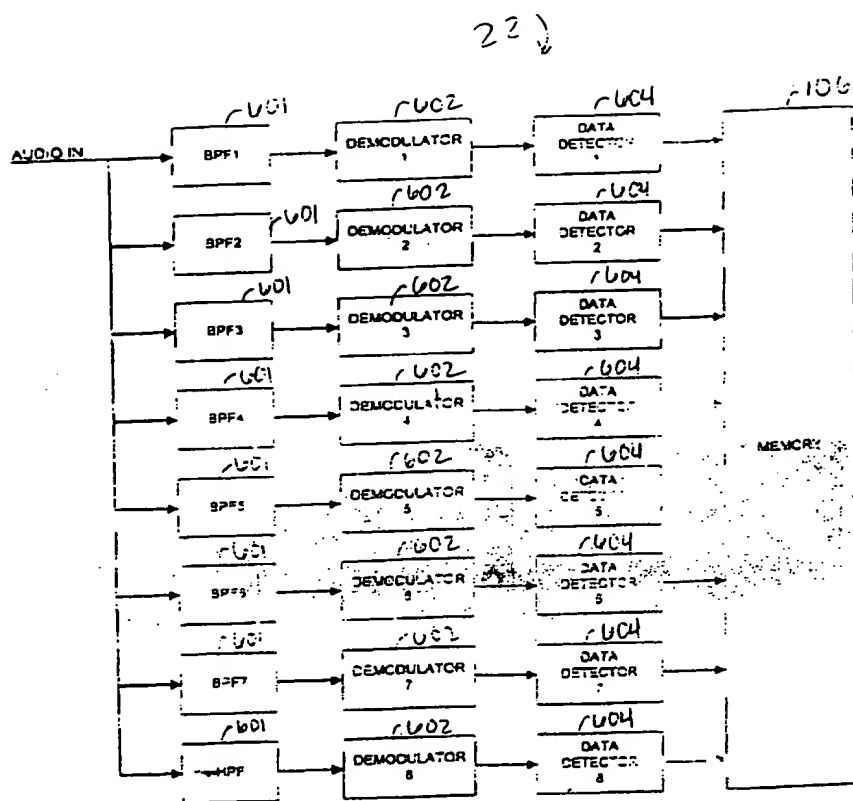 22
601
602
604
106
AUDIO IN
BPF1
DEMODULATOR
1
DATA
DETECTOR
1
601
602
604
BPF2
DEMODULATOR
2
DATA
DETECTOR
2
601
602
604
BPF3
DEMODULATOR
3
DATA
DETECTOR
3
601
602
604
BPF4
DEMODULATOR
4
DATA
DETECTOR
4
MEMORY
601
602
604
BPF5
DEMODULATOR
5
DATA
DETECTOR
5
601
602
604
BPF6
DEMODULATOR
6
DATA
DETECTOR
6
601
602
604
BPF7
DEMODULATOR
7
DATA
DETECTOR
7
601
602
604
HPF
DEMODULATOR
8
DATA
DETECTOR
8